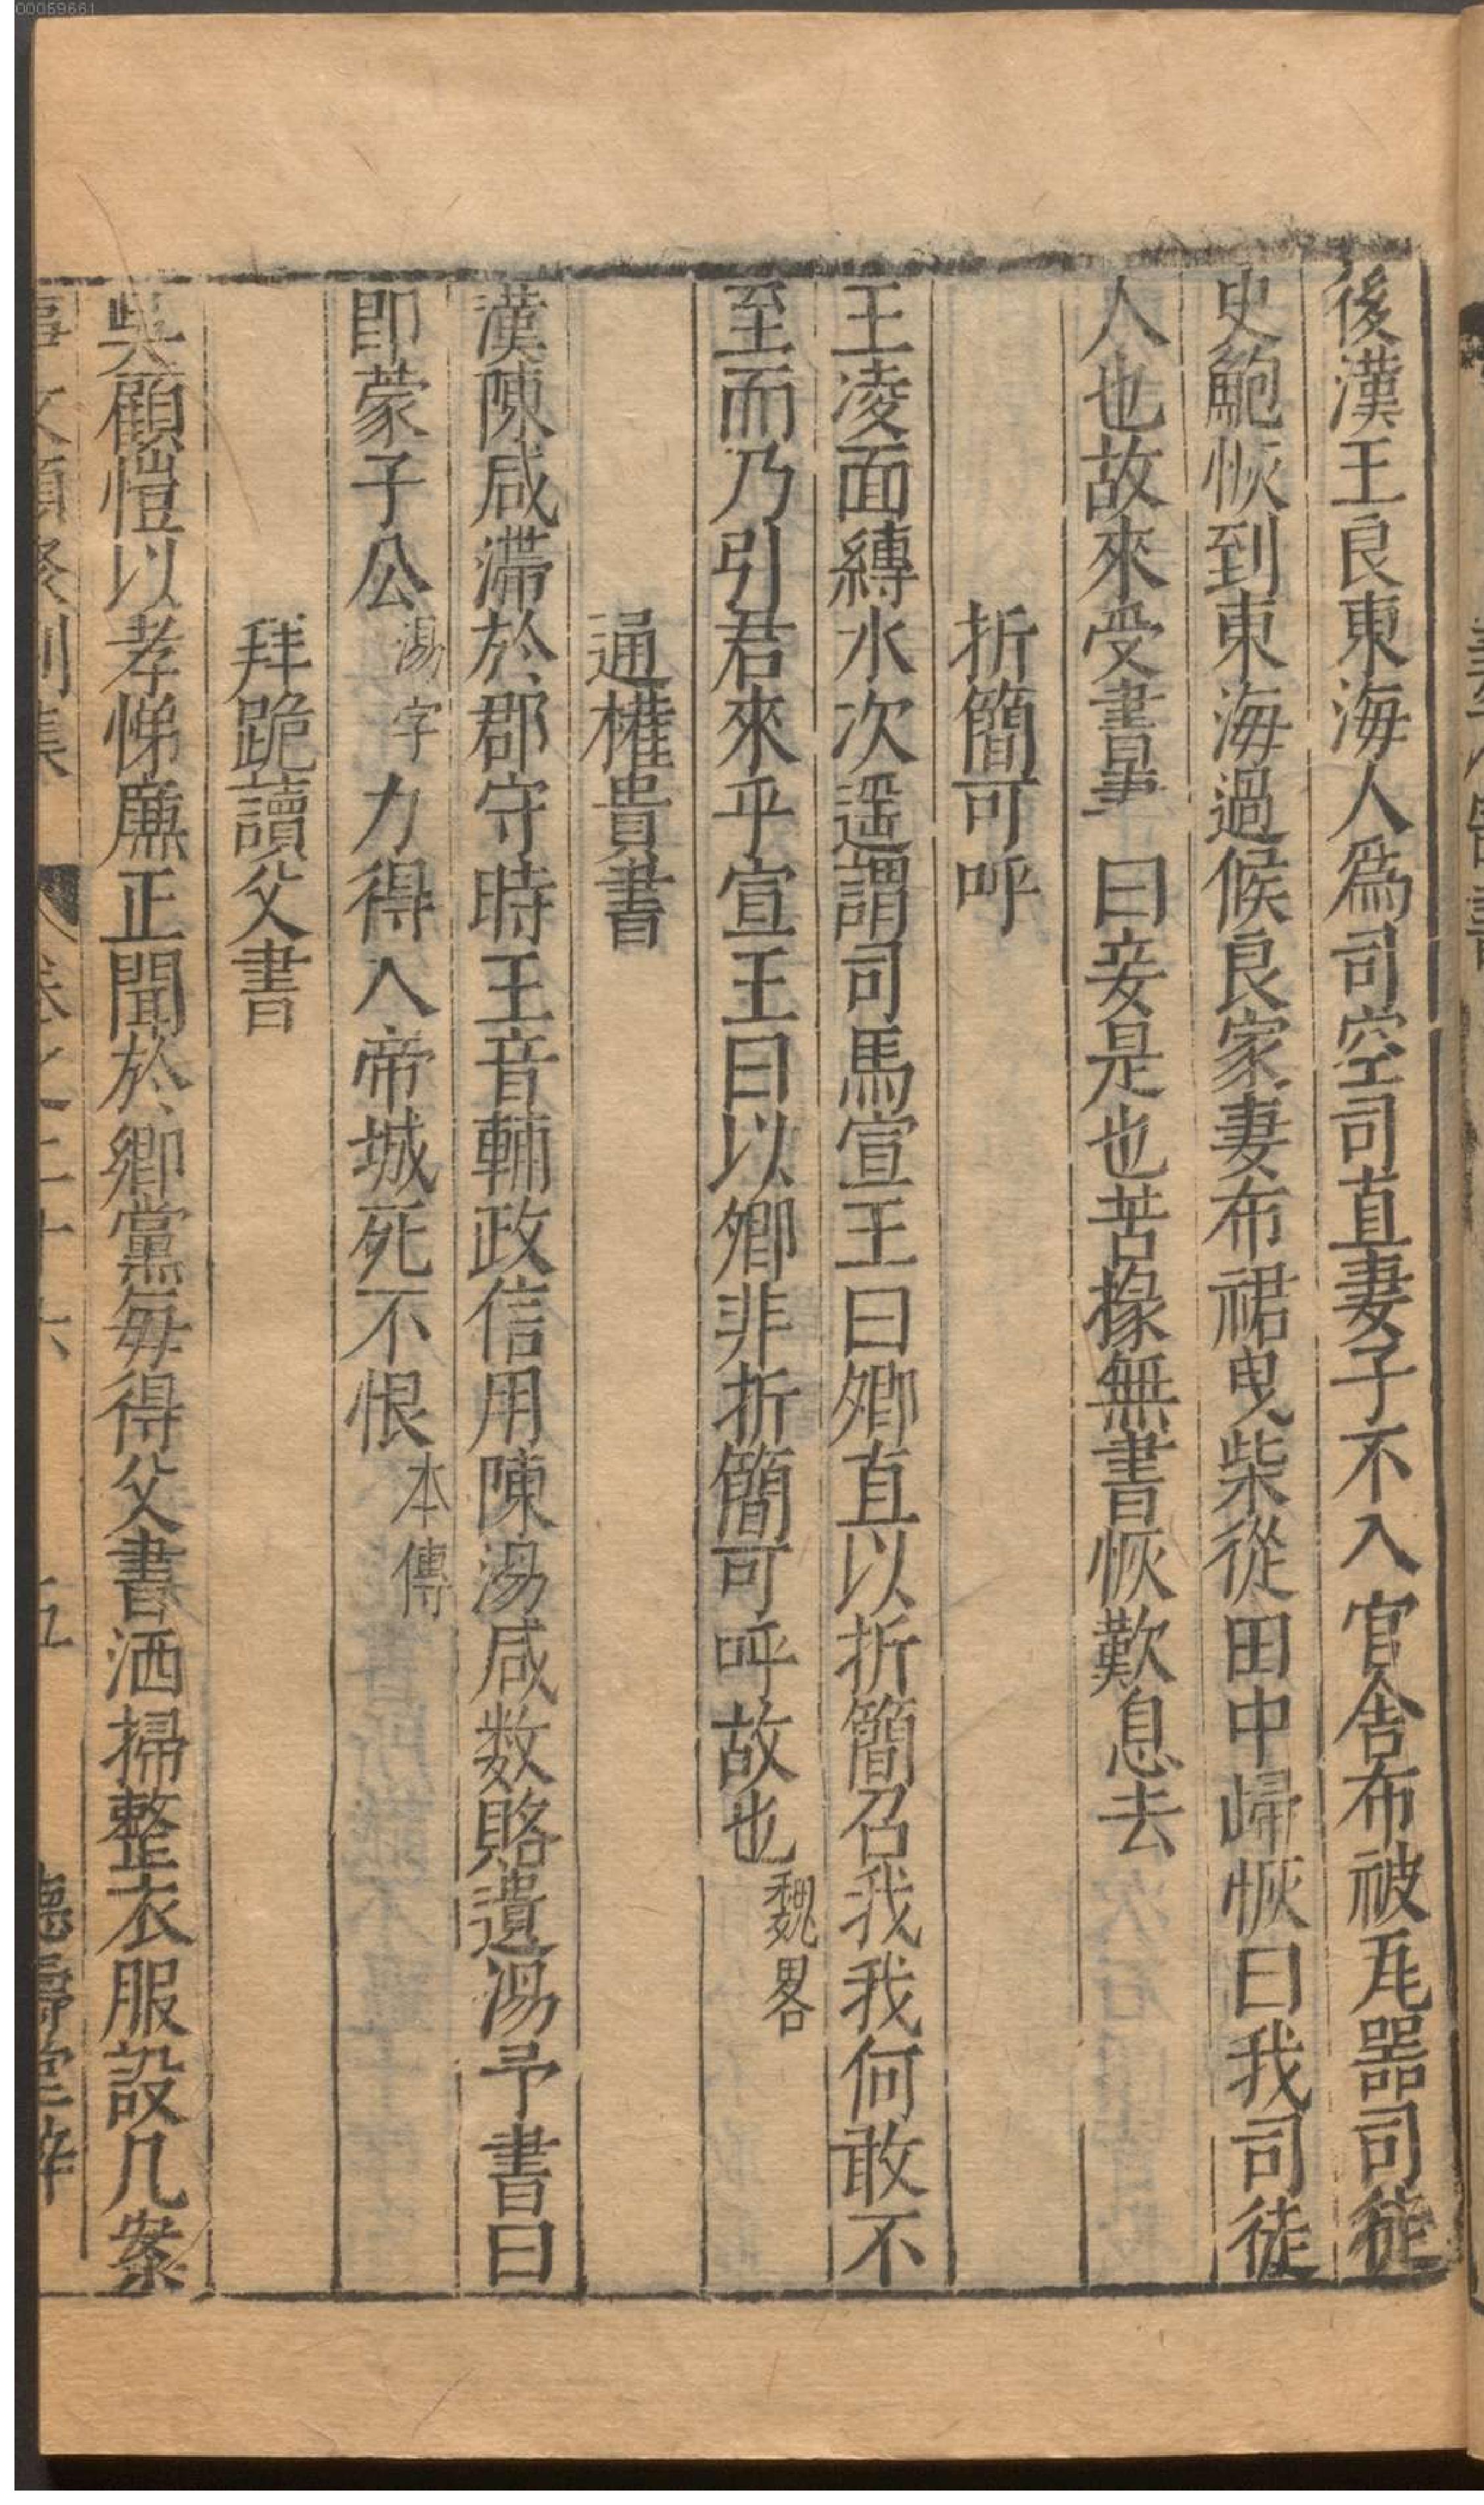 00059661
後漢王良東海人爲司空司直妻子不入官舎布被瓦器司徒
史鮑恢到東海過候良家妻布裙曳柴從田中歸恢曰我司徒
人也故來受書妻曰妾是也苦掾無書恢歎息去
折簡可呼
王凌面縛水次遥謂司馬宣王曰卿直以折簡召我我何敢不
至而乃引君來乎宣王曰以卿非折簡可呼故也魏畧
通權貴書
漢陳咸滯於郡守時王音輔政信用陳湯咸数賂遺湯予書曰
即蒙子公湯字力得入帝城死不恨本傳
拜跪讀父書
吳顧愷以孝悌廉正聞於鄉黨每得父書洒掃整衣服設几案
事文類聚別集 卷之二十六 五 德壽堂梓